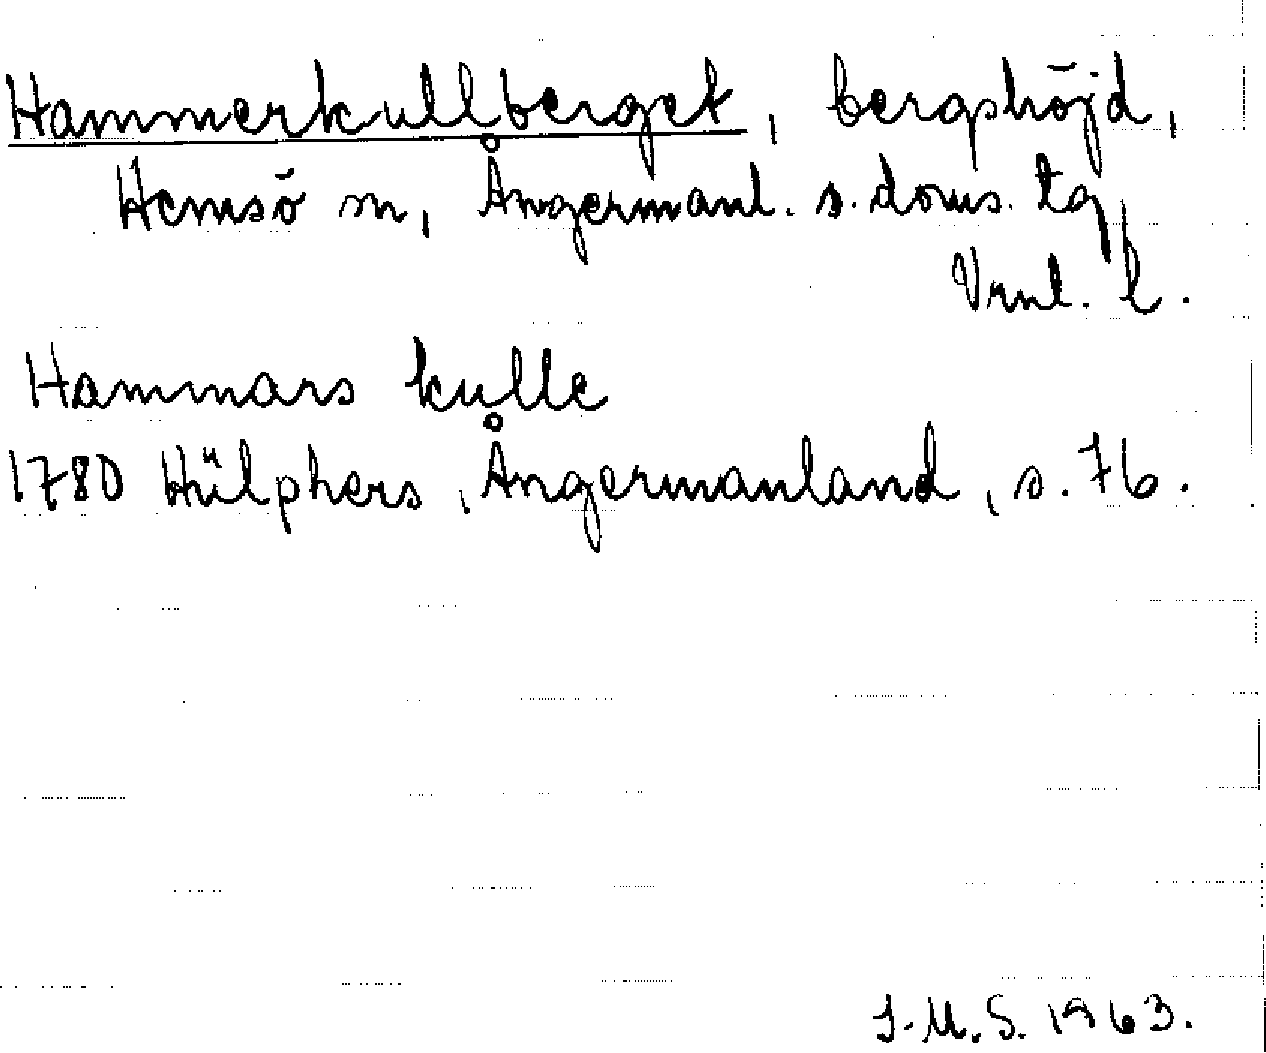 Hammerkullberget, bergshöjd,
Hemsö sn, Ångermanl. s. doms. tg,
Vrnl. l.
Hammars kulle
1780 Hülphers, Ångermanland, s. 76.
J.M.S. 1963.